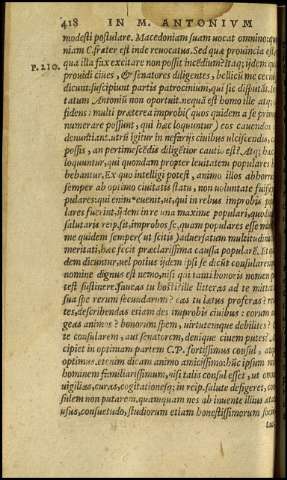 418 IN M. ANTONIVM
modesti postulare. Macedoniam suam uocat omnino, quo
niam C. frater est inde reuocatus. Sed quæ prouincia est, ex
qua illa fax excitare non possit incendium? Itaq; ijdem
prouidi ciues, & senatores diligentes, bellicū me cecinisse
P. 210.
dicunt. suscipiunt pacis patrocinium, qui sic disputāt. Irri
tatum Antoniū non oportuit. nequā est homo ille atq;
fidens: multi præterea improbi( quos quidem a se primum
numerare possunt, qui hæc loquuntur) eos cauendos esse
denuntiant. utri igitur in nefarijs ciuibus ulciscendi, cū
possis, an pertimescēdis diligētior cautio est? Atq; hæc ij
loquuntur, qui quondam propter leuitatem populares ha
bebantur. Ex quo intelligi potest, animo illos abhorruisse
semper ab optimo ciuitatis statu, non uoluntate fuisse po
pulares: qui enim euenit, ut, qui in rebus improbis popu
lares fuerint, ijdem in re una maxime populari, quod eadē
salutaris reip. sit, improbos se, quam populares esse malint?
me quidem semper( uti scitis )aduersatum multitudinis te
meritati, hæc fecit præclarissima caussa popularē. Et qui
dem dicuntur, uel potius ijdem ipsi se dicūt consulares: quo
nomine dignus est nemo, nisi qui tanti honoris nomen po
test sustinere. faueas tu hosti? ille litteras ad te mittat de
sua spe rerum secundarum? eas tu lætus proferas? reci
tes, describendas etiam des improbis ciuibus? eorum au
geas animos? bonorum spem, uirtutemque debilites? &
te consularem, aut senatorem, denique ciuem putes? Ac
cipiet in optimam partem C. P. fortissimus consul, atq;
optimus. etenim dicam animo amicissimo: hūc ipsum mihi
hominem familiarissimum, nisi talis consul esset, ut omnes
uigilias, curas, cogitationesq; in reip. salute defigeret, con
sulem non putarem. quamquam nos ab inuente illius ætate
usus, consuetudo, studiorum etiam honestissimorum socie